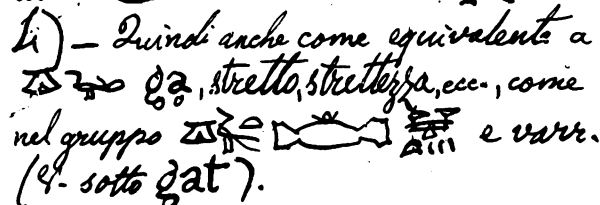 Li) — Quindi anche come equivalente a
ga, stretto, strettezza, ecc., come
nel gruppo e varr.
(V. sotto gat).